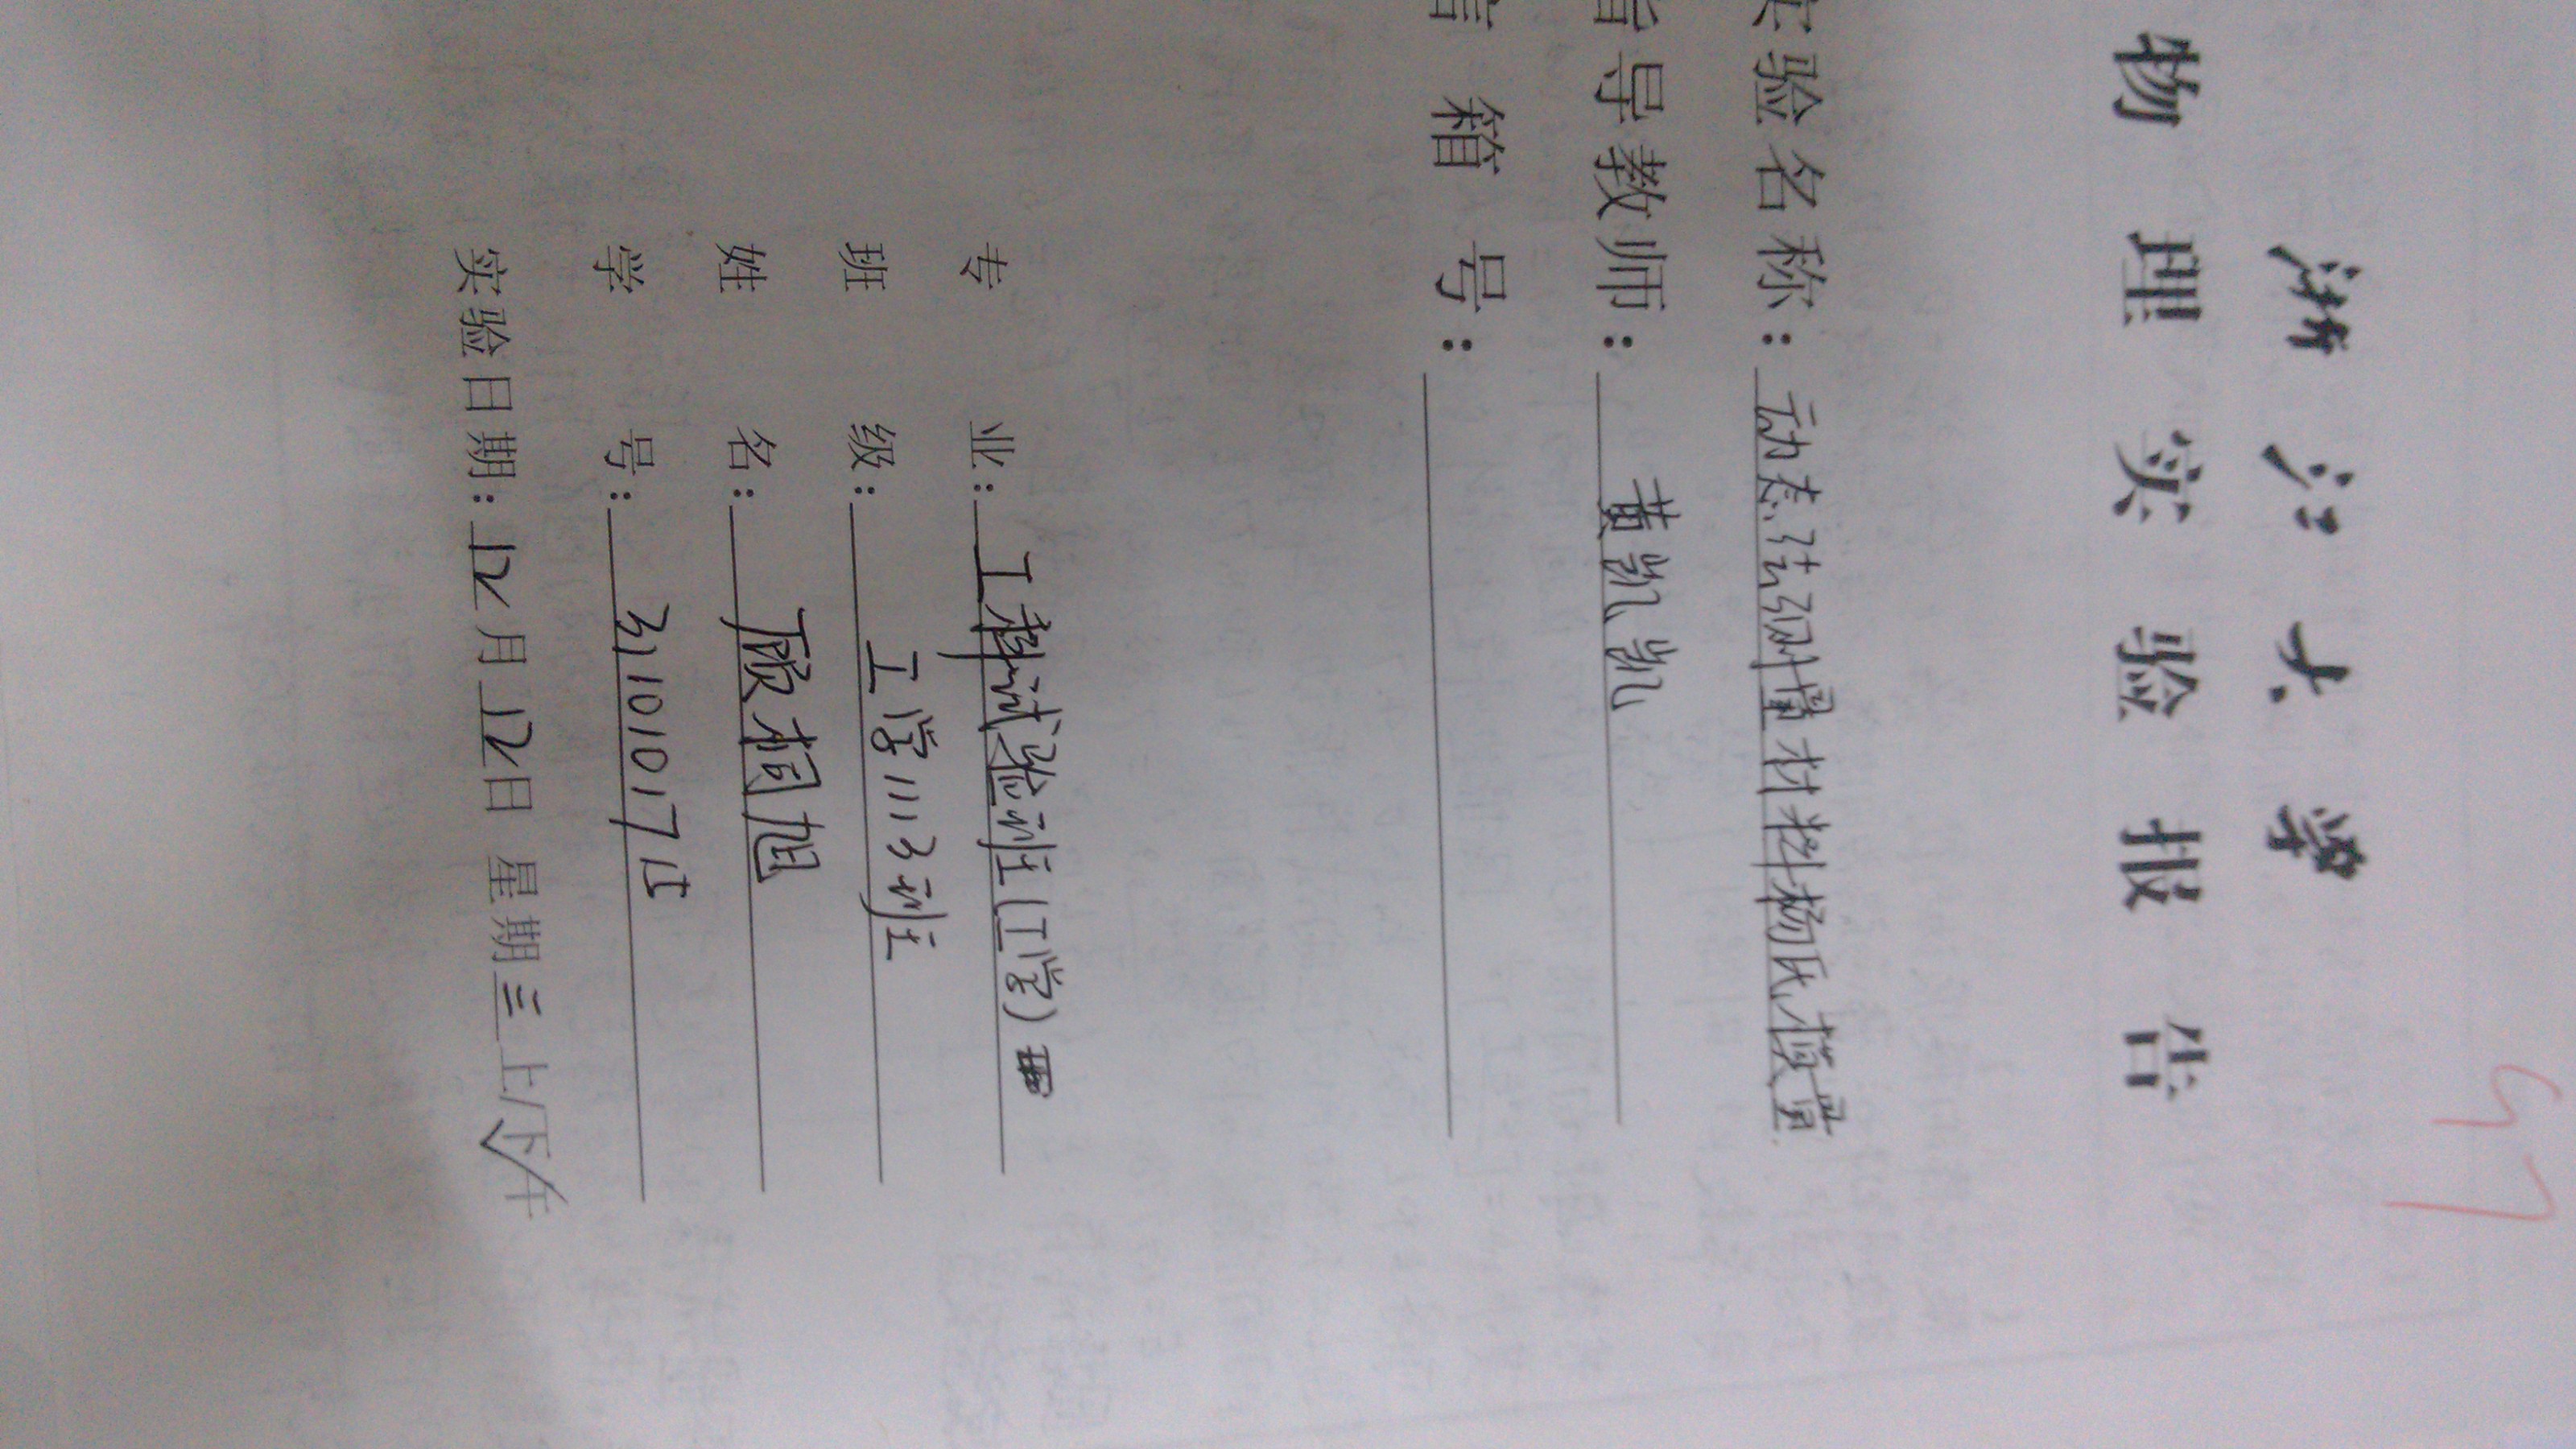 47
浙江大学
物理实验报告
实验名称：动态法测量材料杨氏模量
指导教师：黄凯凯
信箱号：
专业：工科试验班(工学)
班级：工学1113班
姓名：顾桐旭
学号：3110101715
实验日期：12月12日 星期三上/下午